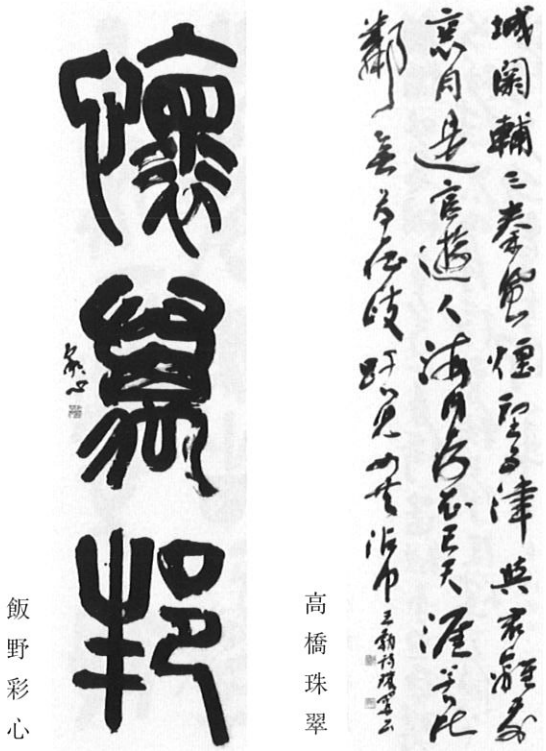 城闕輔三秦風煙望五津與君離別
意同是宦遊人海内存知己天涯若比
鄰無為在歧路児女共沾巾 王勃詩
高橋珠翠
懷萬邦
彩心
飯野彩心